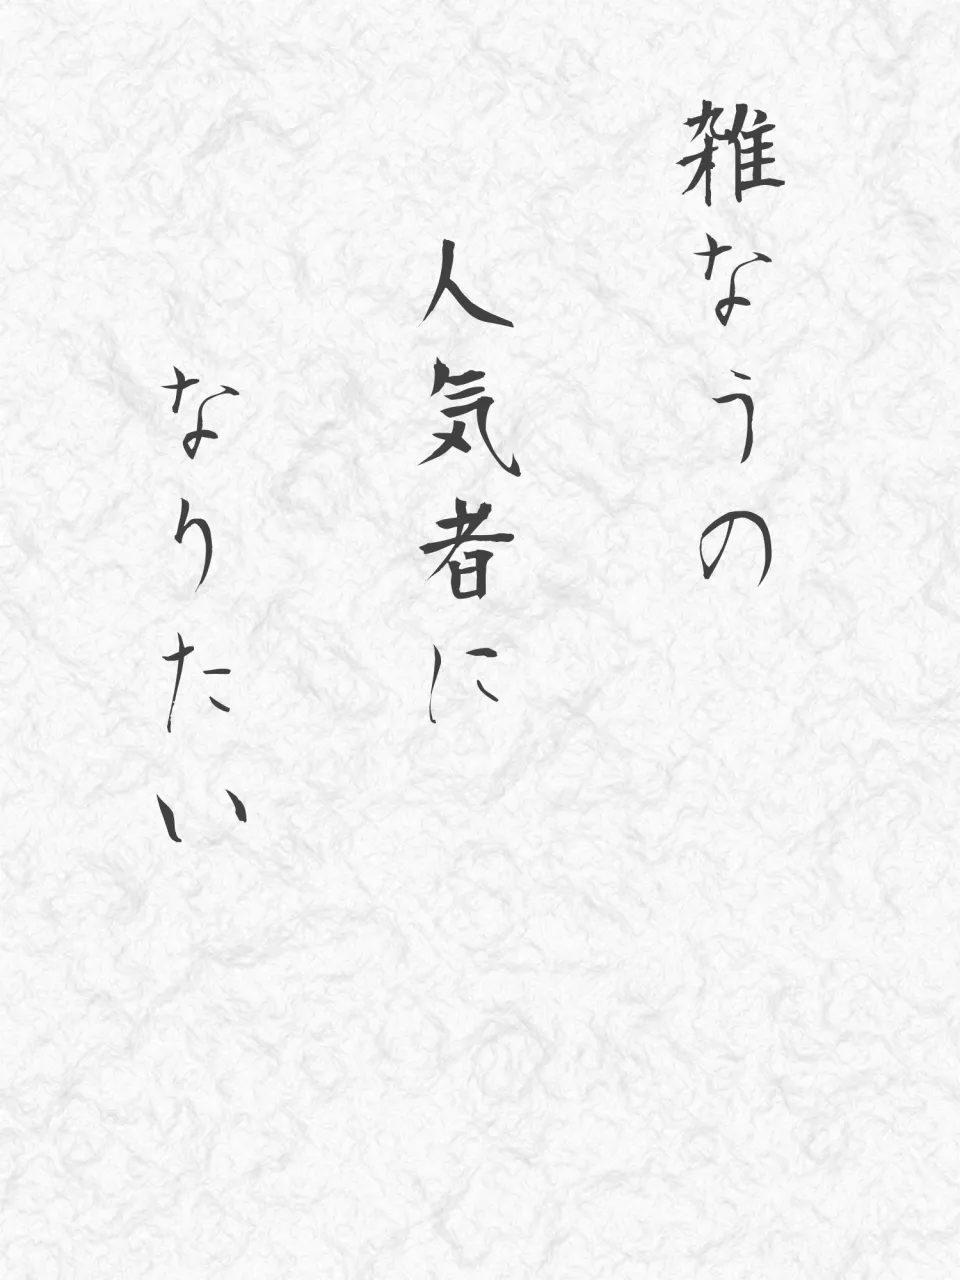 雑なうの
人気者に
なりたい